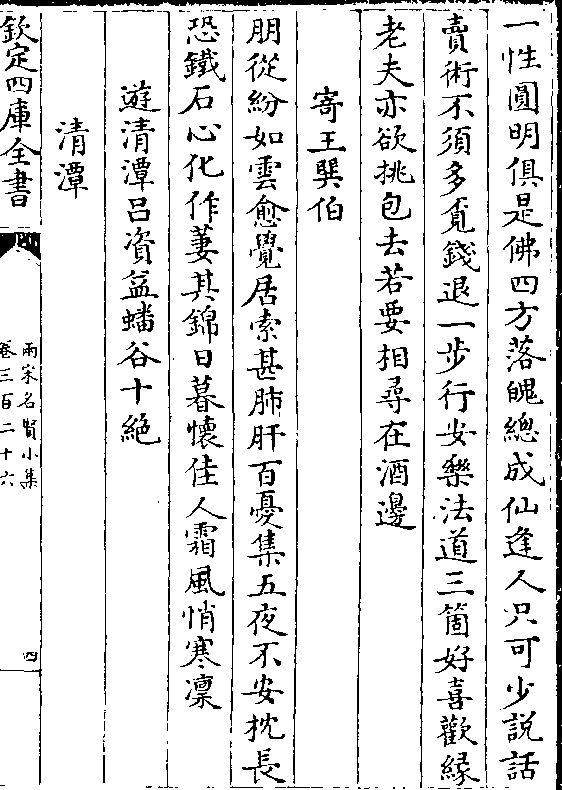 一性圓明俱是佛四方落魄總成仙逢人只可少說話
賣術不須多覔錢退一步行安樂法道三箇好喜歡縁
老夫亦欲挑包去若要相尋在酒邊
寄王巽伯
朋從紛如雲愈覺居索甚肺肝百憂集五夜不安枕長
恐鐵石心化作萋其錦日暮懷佳人霜風悄寒凜
遊清潭吕資益蟠谷十絶
清潭
欽定四庫全書
兩宋名賢小集
卷三百二十六
四